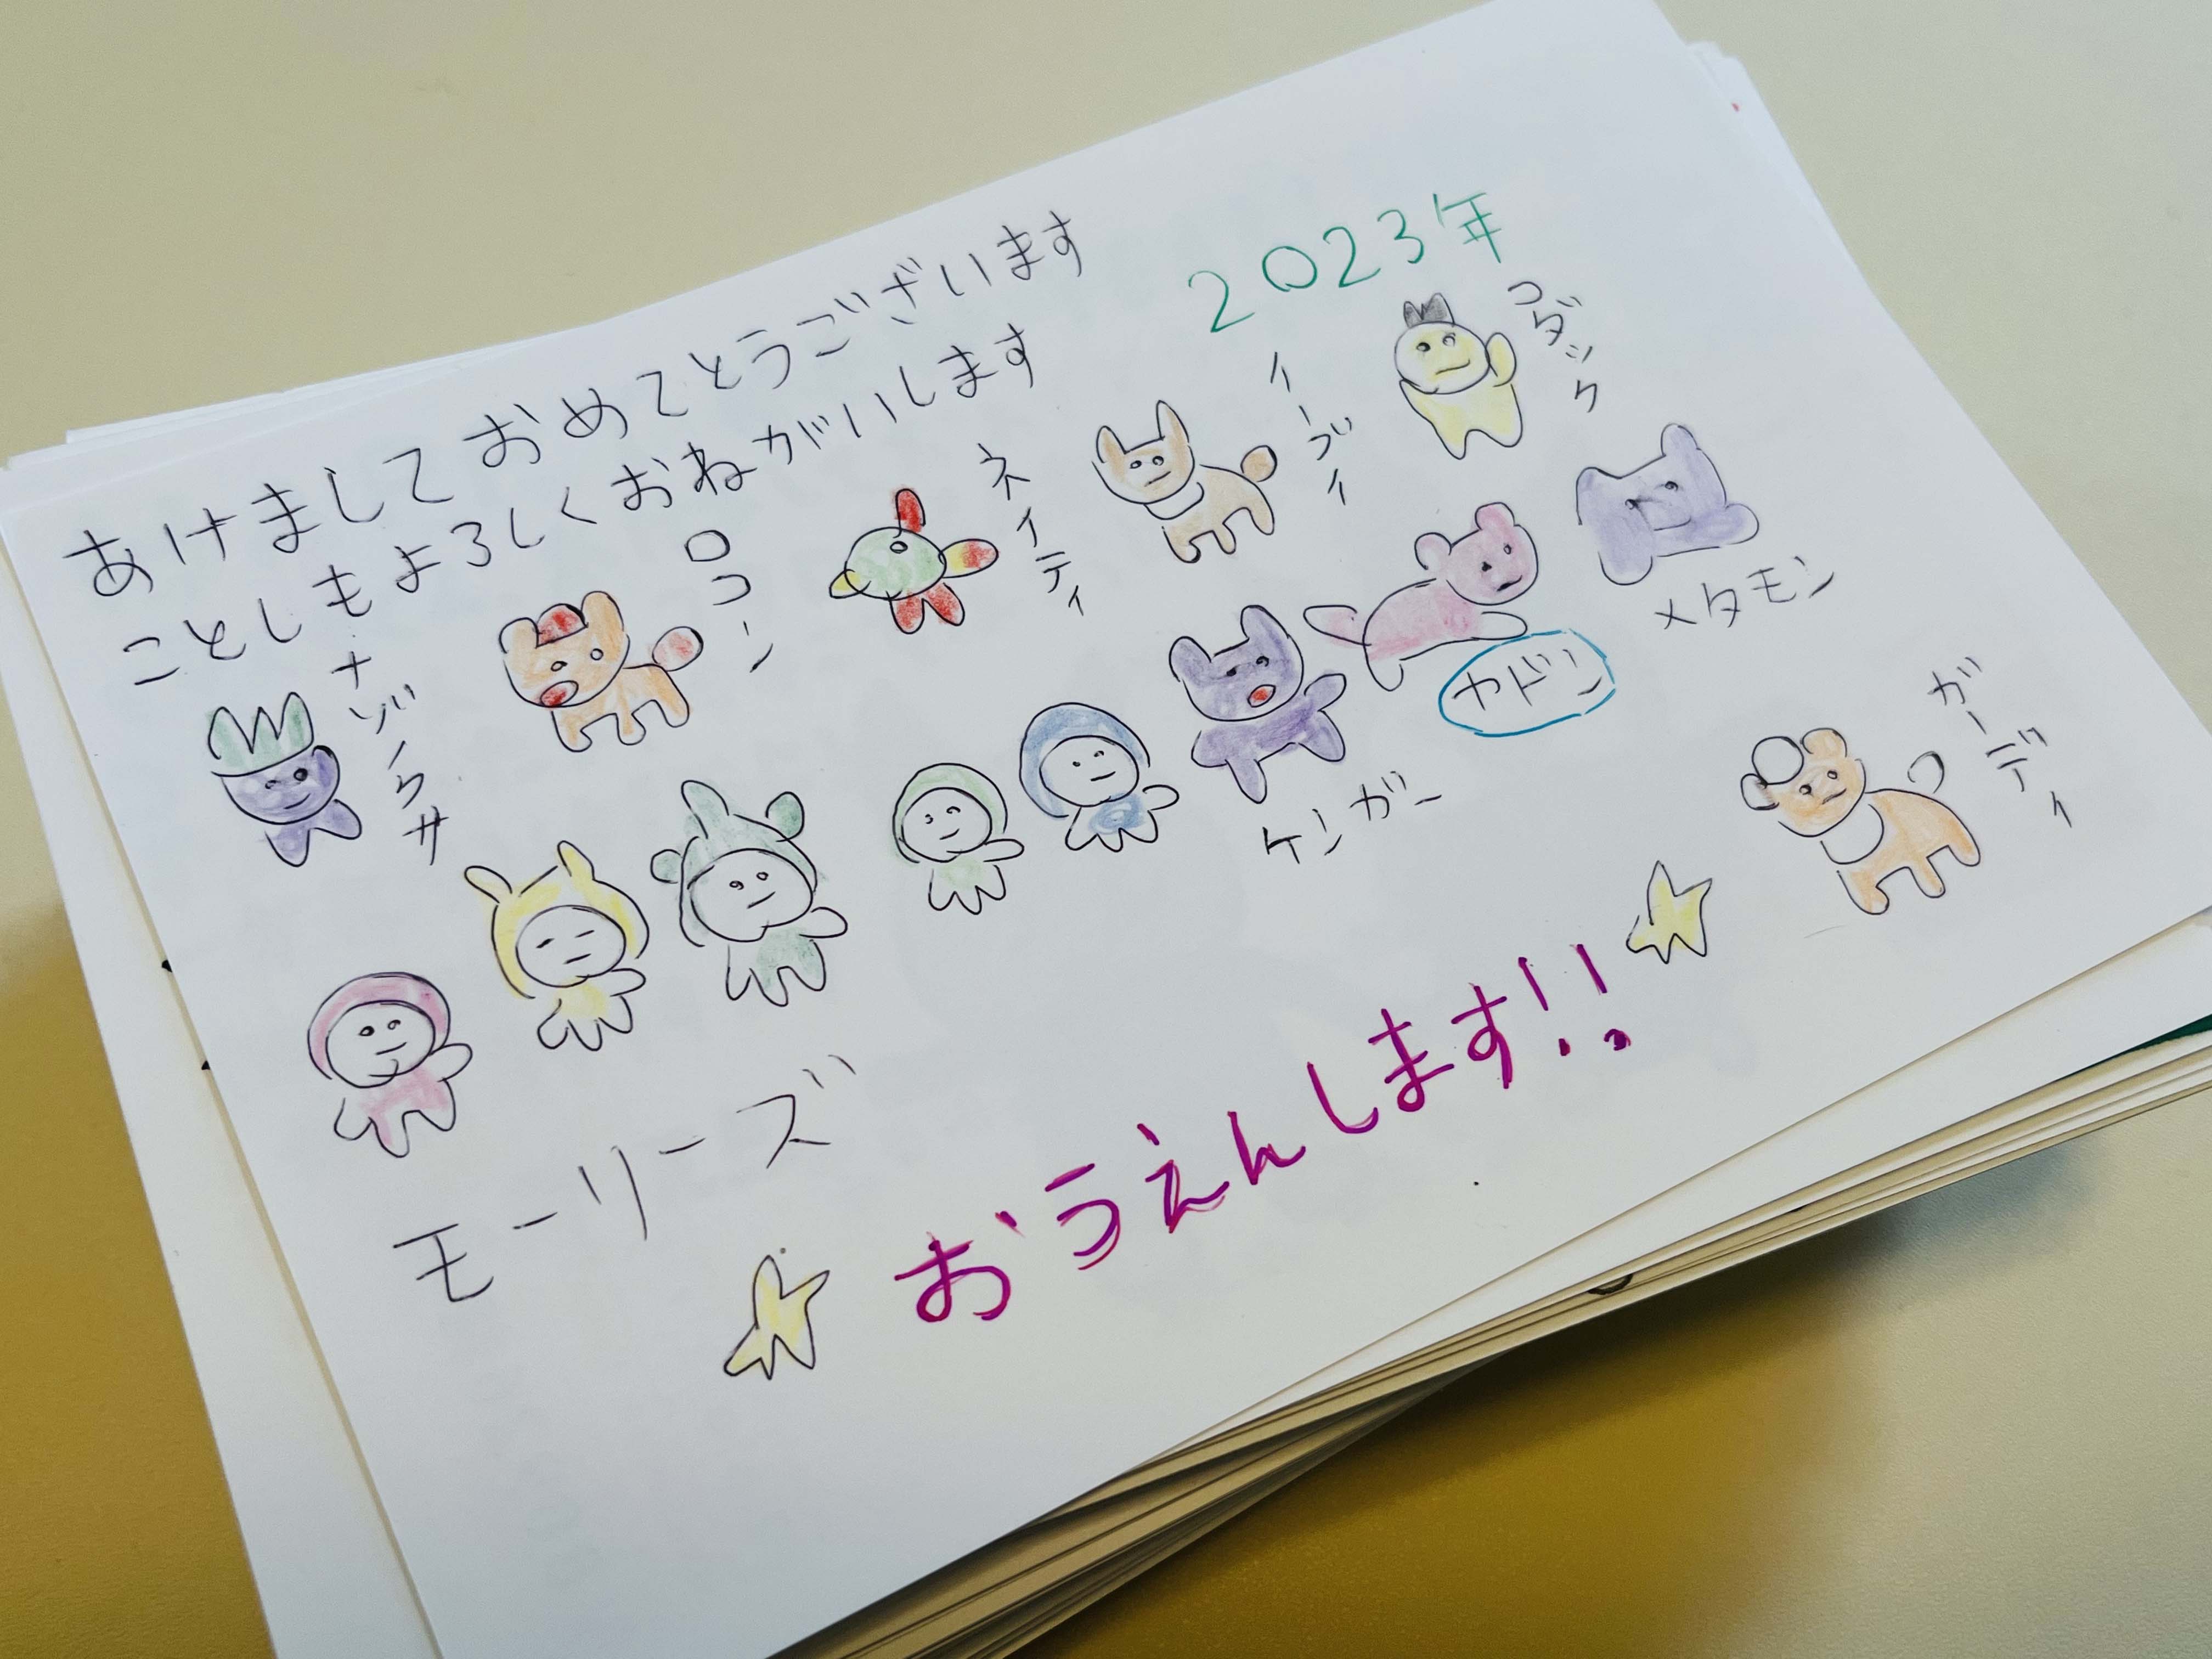 2023年
あけましておめでとうございます
ことしもよろしくおねがいします
コダック
イーブイ
ネイティ
ロコン
ナゾノクサ
メタモン
ヤドン
ケンガー
ガーディ
モーリーズ
おうえんします!!